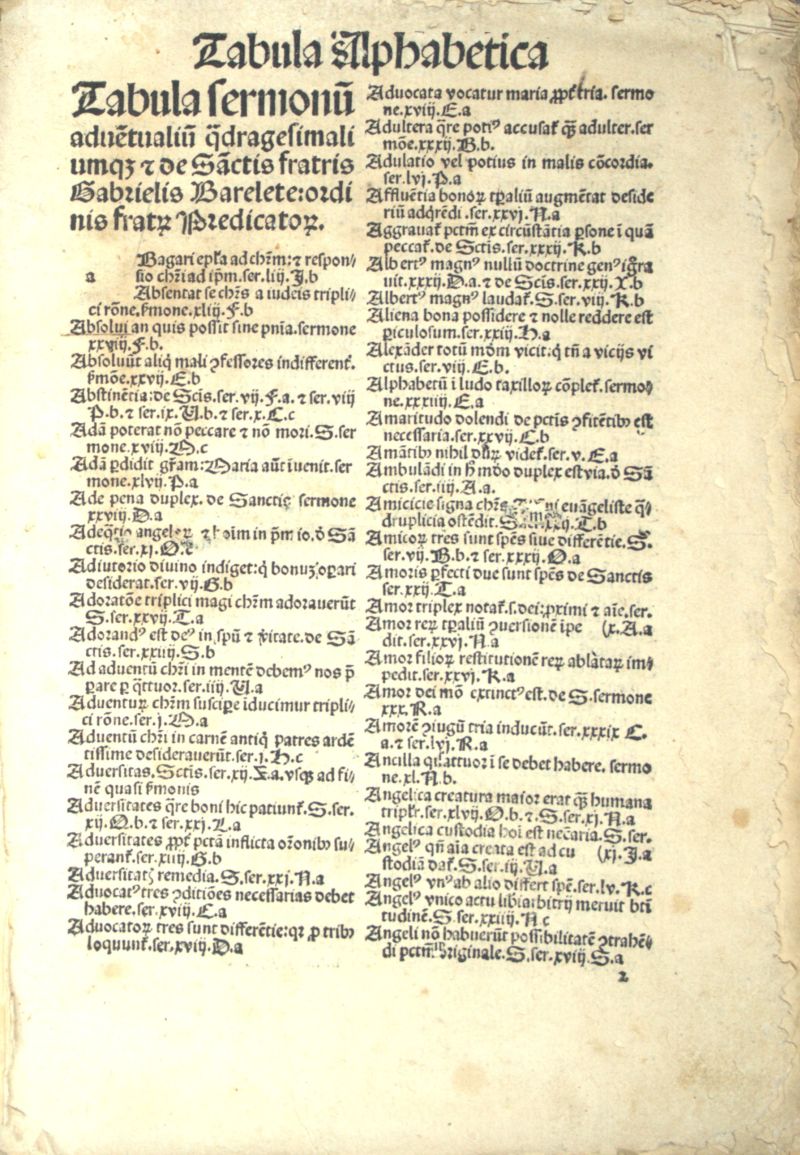 Tabula Alphabetica
Tabula sermonū
aduētualiū q̄dragesimali
umqȝ ⁊ de Sāctis fratris
Gabrielis Barelete:ordi
nis fratꝝ Predicatoꝝ.
Bagari epr̄a ad chr̄m:⁊ respon⸗
a sio chr̄i ad ip̄m.ser.liij.J.b
Absentat se chr̄s a iudeis tripli⸗
ci rōne.ẜmone.xliij.F.b
Absolui an quis possit sine pn̄ia.sermone
xxviij.F.b.
Absoluūt aliq̇ mali ꝯfessores indifferenṫ.
ẜmōe.xxvij.E.b
Abstinētia:de Scīs.ser.vij.F.a.⁊ ser.viij
P.b.⁊ ser.ix.U.b.⁊ ser.x.C.c
Adā poterat nō peccare ⁊ nō mori.S.ser
mone.xviij.D.c
Adā ꝑdidit gr̄am:Maria aūt īuenit.ser
mone.xlvij.P.a
Ade pena duplex.de Sanctis sermone
xxviij.D.a
angeloꝝ ⁊ hoīm in pm̄ io.ō Sā
ctis.ser.xj.O.c
Adiutorio diuino indiget:q̇ bonuȝ oꝑari
desiderat.ser.vij.G.b
Adoratōe triplici magi chr̄m adorauerūt
S.ser.xxvij.T.a
Adorandꝰ est deꝰ in spū ⁊ v̇itate.de Sā
ctis.ser.xxiij.S.b
Ad aduentū chr̄i in mentē debemꝰ nos p̄
ꝑare ꝑ q̇ttuor.ser.iiij.U.a
Aduentuꝝ chr̄m suscipe īducimur tripli⸗
ci rōne.ser.j.D.a
Aduentū chr̄i in carnē antiq̇ patres ardē
tissime desiderauerūt.ser.j.H.c
Aduersitas.Sctis.ser.xij.X.a.vsqȝ ad fi⸗
nē quasi ẜmonis
Aduersitates q̄re boni hic patiunṫ.S.ser.
xij.O.b.⁊ ser.xxj.L.a
Aduersitates ꝓpṫ pctā inflicta or̄onibꝰ su⸗
peranṫ.ser.xiij.G.b
Aduersitatȝ remedia.S.ser.xxj.N.a
Aduocatꝰ tres ꝯditiōes necessarias debet
habere.ser.xviij.C.a
Aduocatoꝝ tres sunt differētie:qꝛ ꝓ tribꝰ
loquunṫ.ser.xviij.D.a
Aduocata vocatur maria ꝓpṫ tria. sermo
ne.xviij.E.a
Adultera q̄re potiꝰ accusaṫ qȝ adulter.ser
mōe.xxxij.B.b.
Adulatio vel potius in malis cōcordia.
ser.lvj.P.a
Affluētia bonoꝝ tꝑaliū augmētat deside
riū adq̇rēdi.ser.xxvj.N.a
Aggrauaṫ pctm̄ ex circūstātia ꝑsone ī quā
peccaṫ.de Sctis.ser.xxxij.K.b
Albertꝰ magnꝰ nullū doctrine genꝰ igr̄a
uit.xxxij.D.a.⁊ de Sctis.ser.xxij.Y.b
Albertꝰ magnꝰ laudaṫ.S.ser.viij.K.b
Aliena bona possidere ⁊ nolle reddere est
ꝑiculosum.ser.xxiij.H.a
Alexāder totū mōm vicit:q̇ tn̄ a vicijs vi
ctus.ser.viij.E.b.
Alphabetū ī ludo taxilloꝝ cōpleṫ.sermo⸗
ne.xxxiij.E.a
Amaritudo dolendi de pctis ꝯfitētibꝰ est
necessaria.ser.xxvij.C.b
Amātibꝰ nihil duꝝ videṫ.ser.v.E.a
Ambulādi in h̄ mōdo duplex est via.ō Sā
ctis.ser.iiij.A.a.
Amicicie signa chr̄s euāgeliste q̄⸗
druplicia ostēdit. xxij.T.b
Amicoꝝ tres sunt spēs siue differētie.S.
ser.vij.B.b.⁊ ser.xxxij.O.a
Amoris ꝑfecti due sunt spēs de Sanctis
ser.xxij.T.a
Amor triplex notaṫ.s.dei:ꝓximi ⁊ aīe.ser.
Amor reꝝ tꝑaliū ꝯuersionē īpe (x.A.a
dit.ser.xxvj.N.a
Amor filioꝝ restitutionē reꝝ ablataꝝ im⸗
pedit.ser.xxvj.K.a
Amor dei mō extinctꝰ est.de S.sermone
xxx.R.a
Amorē ꝯiugū tria inducūt.ser.xxxix C.
a.⁊ ser.lvj.R.a
Ancilla quattuor ī se debet habere. sermo
ne.xl.N.b.
Angelica creatura maior erat qȝ humana
tripṫr.ser.xlvij.O.b.⁊.S.ser.xj.N.a
Angelica custodia hoī est nec̄aria.S.ser.
Angelꝰ qn̄ aīa creata est ad cu (xj.J.a
stodiā daṫ.S.ser.iij.U.a
Angelꝰ vnꝰ ab alio differt spē.ser.lv.K.c
Angelꝰ vnico actu lib̄i arbitrij meruit bt̄i
tudinē.S.ser.xxiiij.H.c
Angeli nō habuerūt possibilitatē ꝯtrahē⸗
di pctm̄ originale.S.ser.xviij.S.a
2